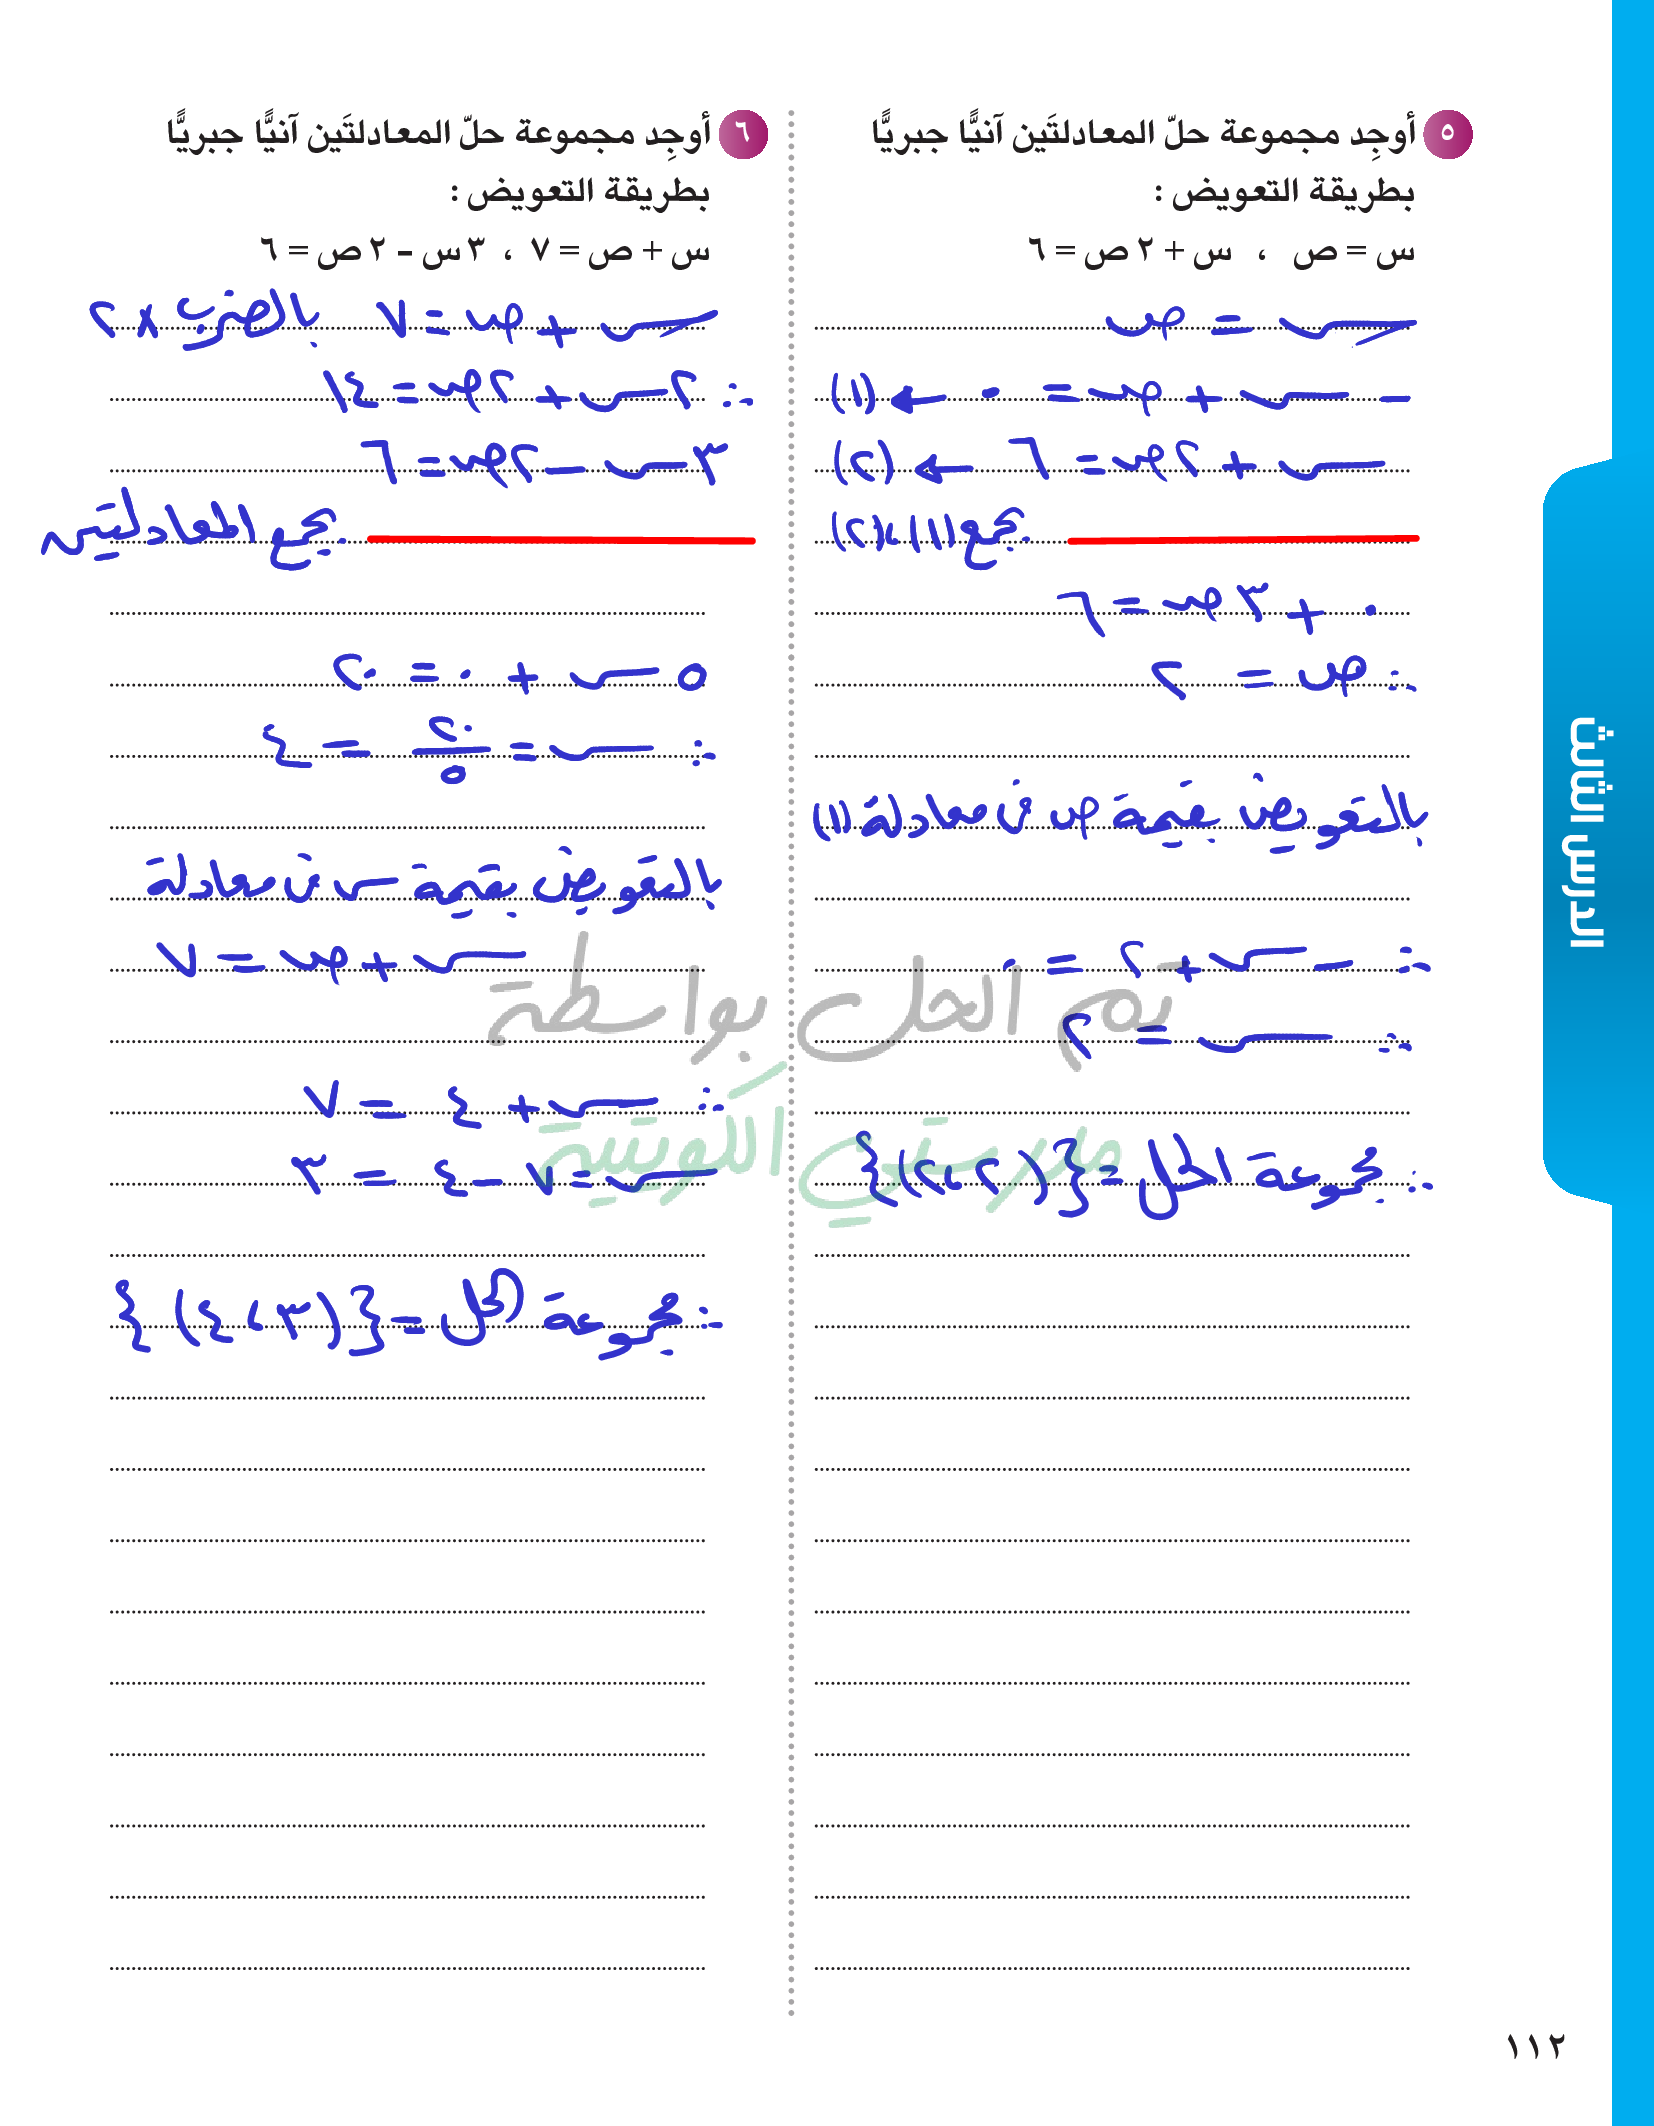 ٥ أوجِد مجموعة حلّ المعادلتَين آنيًّا جبريًّا
بطريقة التعويض :
س = ص ، س + ٢ ص = ٦
س = ص
- س + ص = ٠ ← (١)
س + ٢ص = ٦ ← (٢)
بجمع (١)،(٢)
٠ + ٣ص = ٦
∴ ص = ٢
بالتعويض بقيمة ص في معادلة (١)
∴ - س + ٢ = ٠
∴ س = ٢
∴ مجموعة الحل = {(٢،٢)}
٦ أوجِد مجموعة حلّ المعادلتَين آنيًّا جبريًّا
بطريقة التعويض :
س + ص = ٧ ، ٣ س - ٢ ص = ٦
س + ص = ٧ بالضرب × ٢
∴ ٢س + ٢ص = ١٤
٣س - ٢ص = ٦
بجمع المعادلتين
٥س + ٠ = ٢٠
∴ س = ٢٠/٥ = ٤
بالتعويض بقيمة س في معادلة
س + ص = ٧
∴ س + ٤ = ٧
س = ٧ - ٤ = ٣
∴ مجموعة الحل = {(٣،٤)}
تم الحل بواسطة
مدرستي الكويتية
الدرس الثالث
١١٢